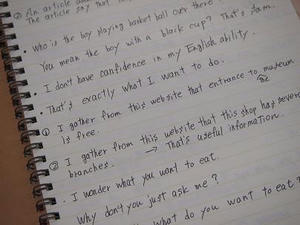 ② An article abo
The article say that
• Who is the boy playing basket ball over there?
You mean the boy with a black cup? That's Sam.
• I don't have confidence in my English ability.
• That's exactly what I want to do.
① I gather from this website that entrance to museum
the
is free.
② I gather from this website that this shop has severa
branches. → That's useful information.
• I wonder what you want to eat.
Why don't you just ask me?
what do you want to eat?